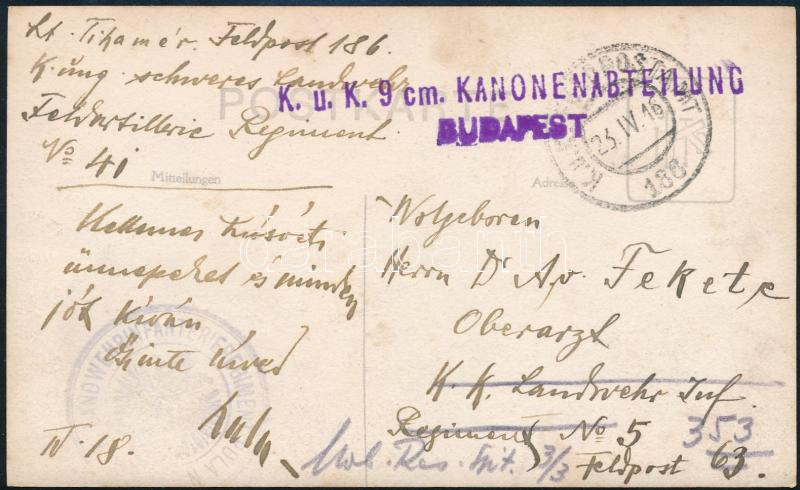 Lt. Tihamér. Feldpost 186.
K. ung. schweres Landwehr
Feldartillerie Regiment
No 41
POSTKARTE
K. u. K. 9 cm. KANONENABTEILUNG
BUDAPEST
23.IV.16
186
Mitteilungen
Kellemes húsvéti
ünnepeket és minden
jót kíván
őszinte híved
IV. 18.
LANDWEHRINFANTERIEREGIMENT
Wolgeboren
Herrn Dr Ap. Fekete
Oberarzt
K. K. Landwehr Inf.
Regiment No 5
353
Feldpost 63.
3/3
darabanth